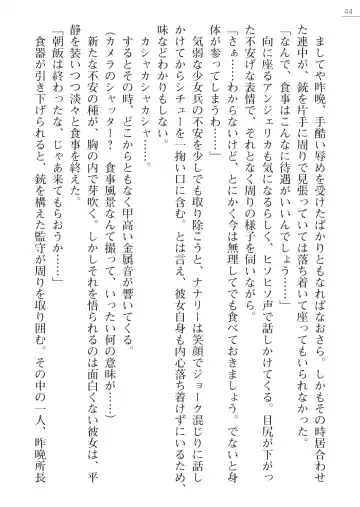 44
ましてや昨晩、手酷い辱めを受けたばかりともなればなおさら。しかもその時居合わせ
た連中が、銃を片手に周りで見張っていては落ち着いて座ってもいられなかった。
「なんで、食事はこんなに待遇がいいんでしょう……」
向に座るアンジェリカも気になるらしく、ヒソヒソ声で話しかけてくる。目尻が下がっ
た不安げな表情で、それとなく周りの様子を伺いながら。
「さぁ……わからないけど、とにかく今は無理してでも食べておきましょう。でないと身
体が参ってしまうわ……」
気弱な少女兵の不安を少しでも取り除こうと、ナナリーは笑顔でジョーク混じりに話し
かけてからシチューを一掬い口に含む。とは言え、彼女自身も内心落ち着けずにいるため、
味などわかりもしない。
カシャカシャカシャ……。
するとその時、どこからともなく甲高い金属音が響いてくる。
(カメラのシャッター? 食事風景なんて撮って、いったい何の意味が……)
新たな不安の種が、胸の内で芽吹く。しかしそれを悟られるのは面白くない彼女は、平
静を装いつつ淡々と食事を終えた。
「朝飯は終わったな、じゃあ来てもらおうか……」
食器が引き下げられると、銃を構えた監守が周りを取り囲む。その中の一人、昨晩所長